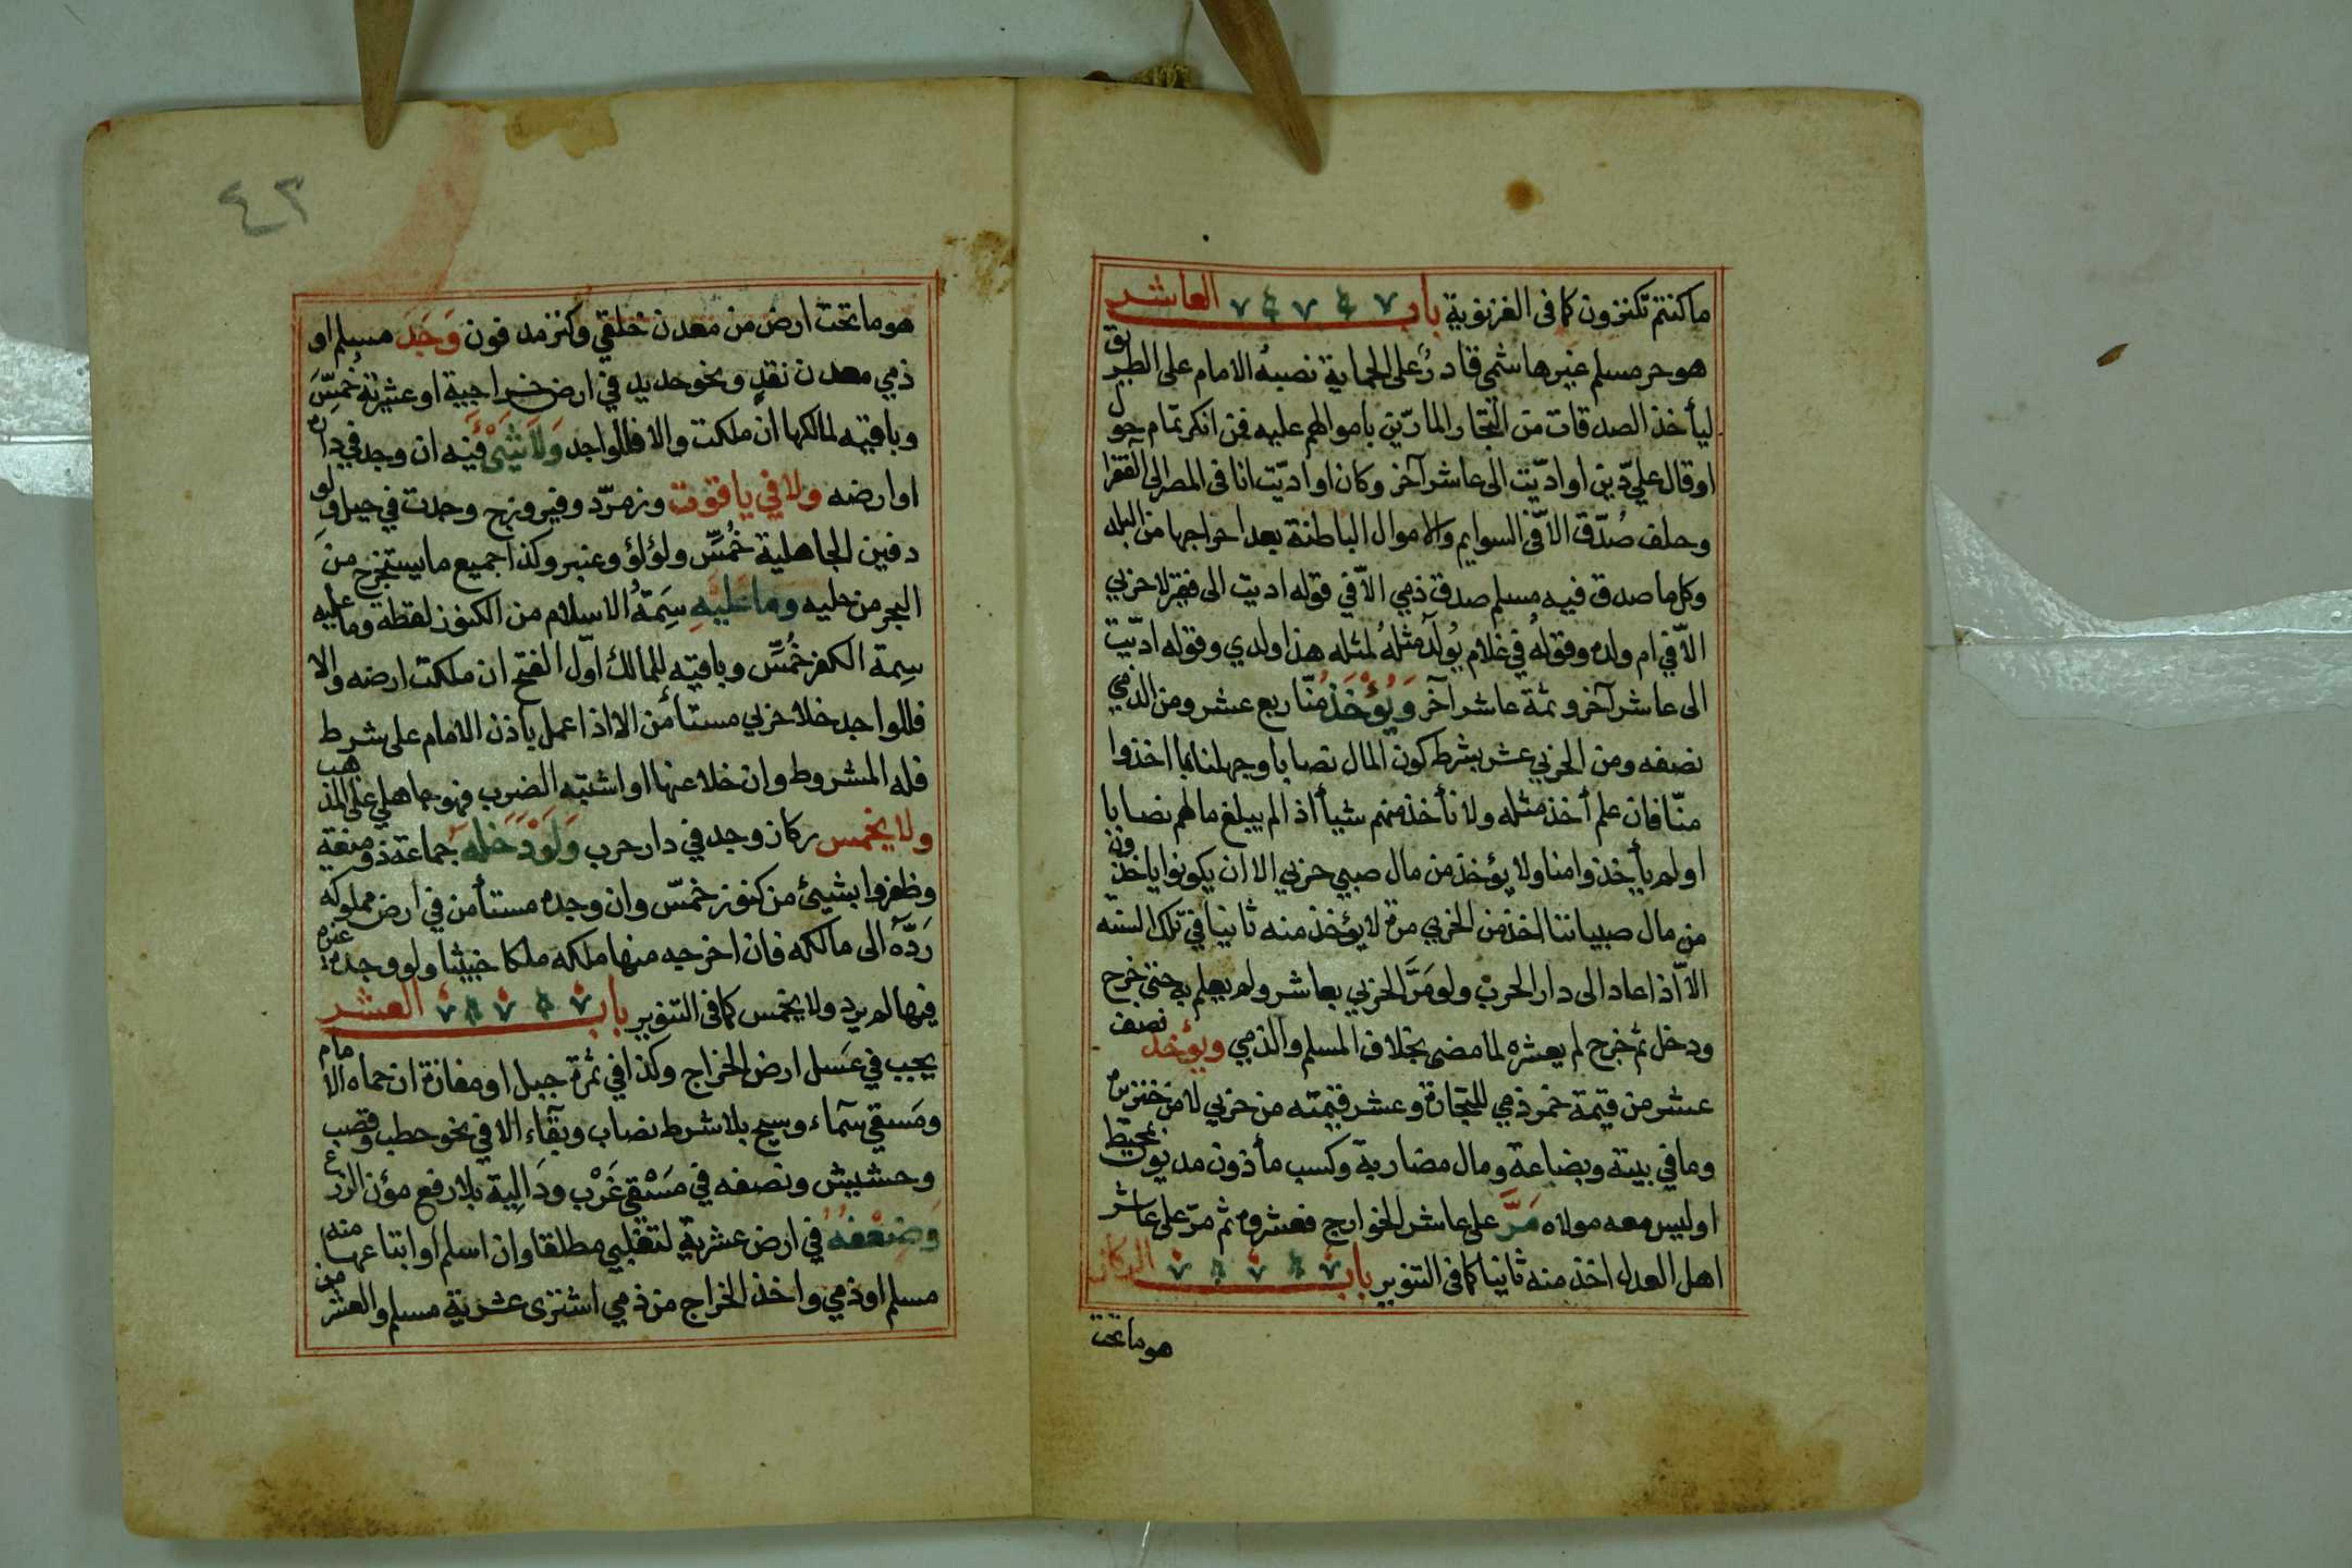 ما كنتم تكنزون كما فى الغزنوية باب العاشر
هو حر مسلم غير هاشمى قادرٌ على الحماية نصبهُ الامام على الطريق
ليأخذ الصدقات من التجار المارّين باموالهم عليه فمن انكر تمام حول
او قال عليّ دين او ادّيت الى عاشر آخر وكان او ادّيت انا فى المصر الى الفقرا
وحلف صُدّق الاّ فى السوايم والاموال الباطنة بعد اخراجها من البلد
وكل ما صدق فيه مسلم صدق ذمي الاّ في قوله اديت الى فقير لا حربي
الاّ في ام ولده وقولهُ في غلام يُولَد مثلهُ لمثله هذا ولدي وقوله ادّيت
الى عاشر آخر وثمة عاشر آخر وَيُؤْخَذُ منّا ربع عشر ومن الذمي
نصفه ومن الحربي عشر بشرط كون المال نصابا وجهلنا بما اخذوا
منّا فان علم أخذ مثله ولا نأخذ منهم شيأ اذا لم يبلغ مالهم نصابا
او لم يأخذوا منا ولا يؤخذ من مال صبي حربي الا ان يكونوا ياخذون
من مال صبياننا اخذ من الحربي مرة لا يؤخذ منه ثانيا في تلك السنه
الاّ اذا عاد الى دار الحرب ولو مَرَّ الحربي بعاشر ولم يعلم به حتى خرج
ودخل ثم خرج لم يعشره لما مضى بخلاف المسلم والذمي ويؤخذ نصف
عشر من قيمة خمر ذمي للتجارة وعشر قيمته من حربي لا من خنزيره
وما في بيته وبضاعة ومال مضاربة وكسب مأذون مديون بمحيط
او ليس معه مولاه مَرَّ على عاشر الخوارج فعشروه ثم مرّ على عاشر
اهل العدل اخذ منه ثانيا كما فى التنوير باب الركاز
هو ما تحت
٤٣
هو ما تحت ارض من معدن خلقي وكنز مدفون وَجَدَ مسلم او
ذمي معدن نقدٍ ونحو حديد في ارض خراجية او عشرية خُمسّ
وباقيه لمالكها ان ملكت والا فللواجد وَلاَ شَيْئَ فيه ان وجد في داره
او ارضه ولا في ياقوت وزمرّد وفيروزج وجدت في جبل ولو
دفين الجاهلية خُمسّ ولؤلؤ وعنبر وكذا جميع ما يستخرج من
البحر من حليه وَمَا عَلَيْهِ سِمَةُ الاسلام من الكنوز لقطة وما عليه
سِمة الكفر خُمسّ وباقيه للمالك اوّل الفتح ان ملكت ارضه والا
فللواجد خلا حربي مستأمن الا اذا عمل باذن الامام على شرط
فله المشروط وان خلا عنها او اشتبه الضرب فهو جاهلي على المذهب
ولا يخمس ركاز وجد في دار حرب وَلَوْ دَخَلَهُ جماعة ذو منعة
وظفروا بشيئ من كنوز خمسّ وان وجده مستأمن في ارض مملوكه
رَدّهُ الى مالكه فان اخرجه منها ملكه ملكا خبيثا ولو وجده غيره
فيها لم يرد ولا يخمس كما فى التنوير باب العشر
يجب في عَسل ارض الخراج وكذا في ثمرة جبل او مفازة ان حماه الامام
ومَسقي سمآء وسيح بلا شرط نصاب وبقآء الا في نحو حطب وقصب
وحشيش ونصفه في مَسْقي غَرْب ودَالِية بلا رفع مؤن الزرع
وَضِعْفهُ في ارض عشرية لتغلبي مطلقا وان اسلم او ابتاعها منه
مسلم او ذمي واخذ الخراج من ذمي اشترى عشرية مسلم والعشر من